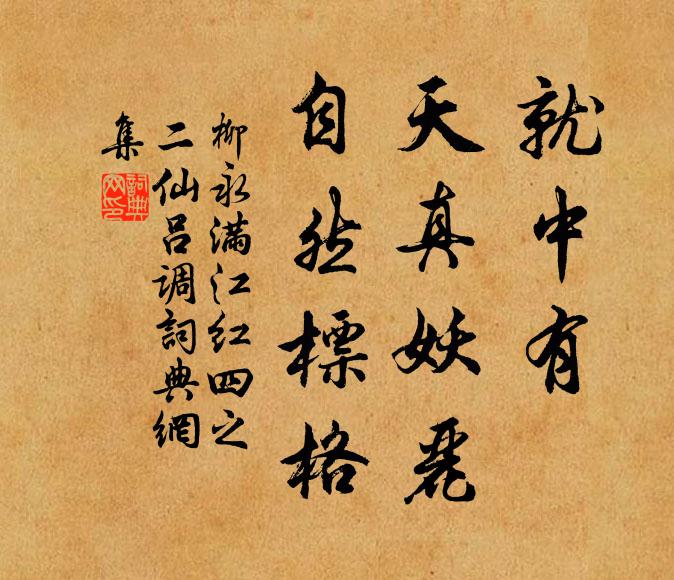 就中有
天真妖麗
自然標格
柳永满江红四之
二仙吕调詞典網
集
詞典网印